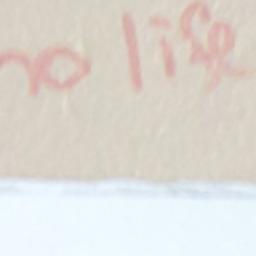 no life